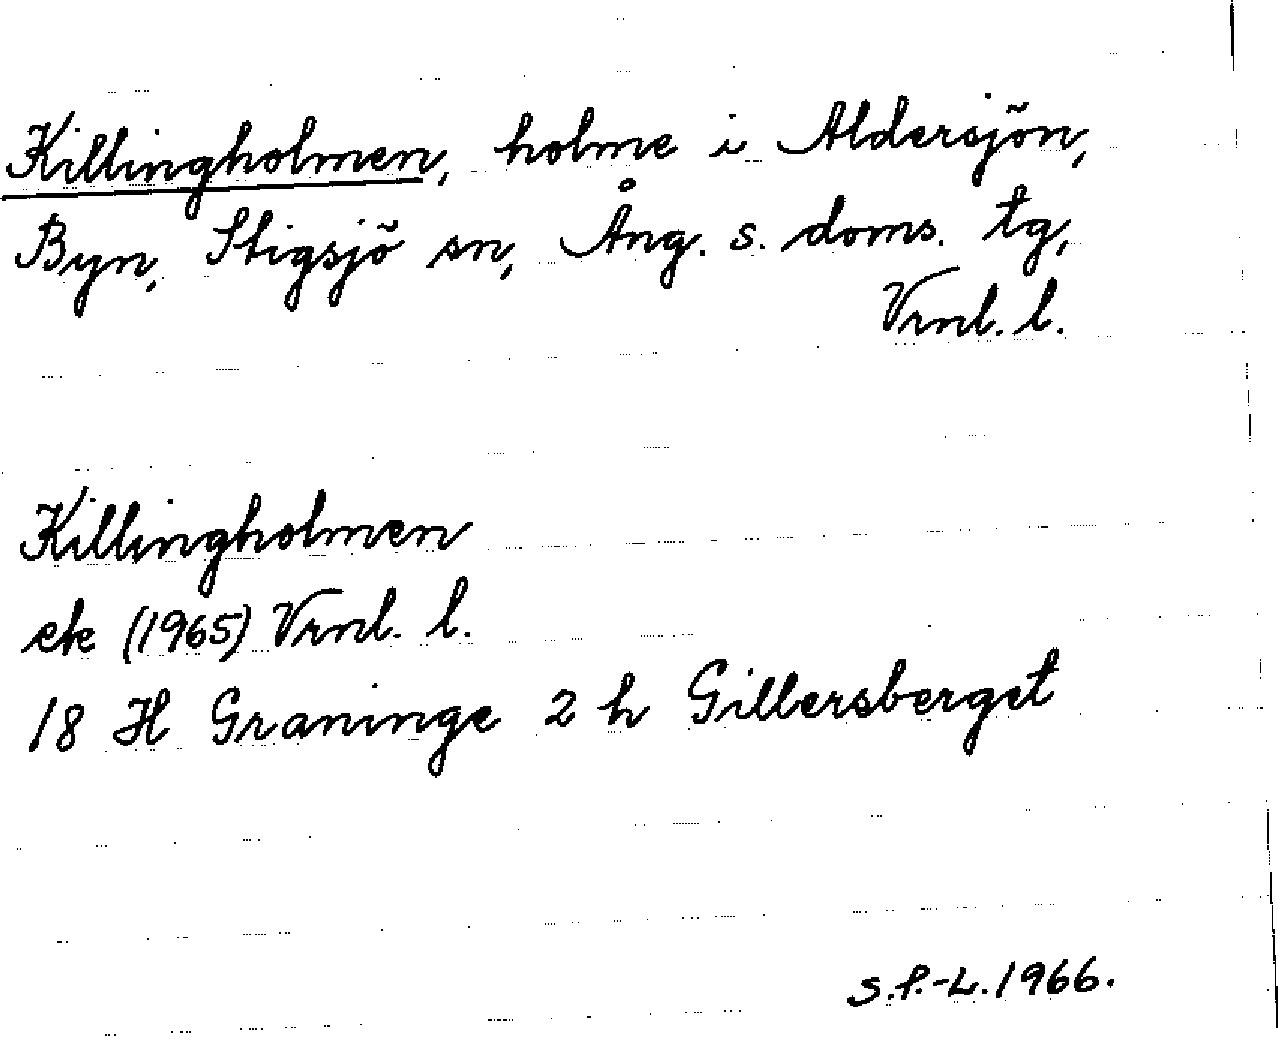 Killingholmen, holme i Aldersjön,
Byn, Stigsjö sn, Ång. s. doms. tg,
Vrnl. l.
Killingholmen
ek (1965) Vrnl. l.
18 H Graninge 2 h Gillersberget
S.P.-L. 1966.